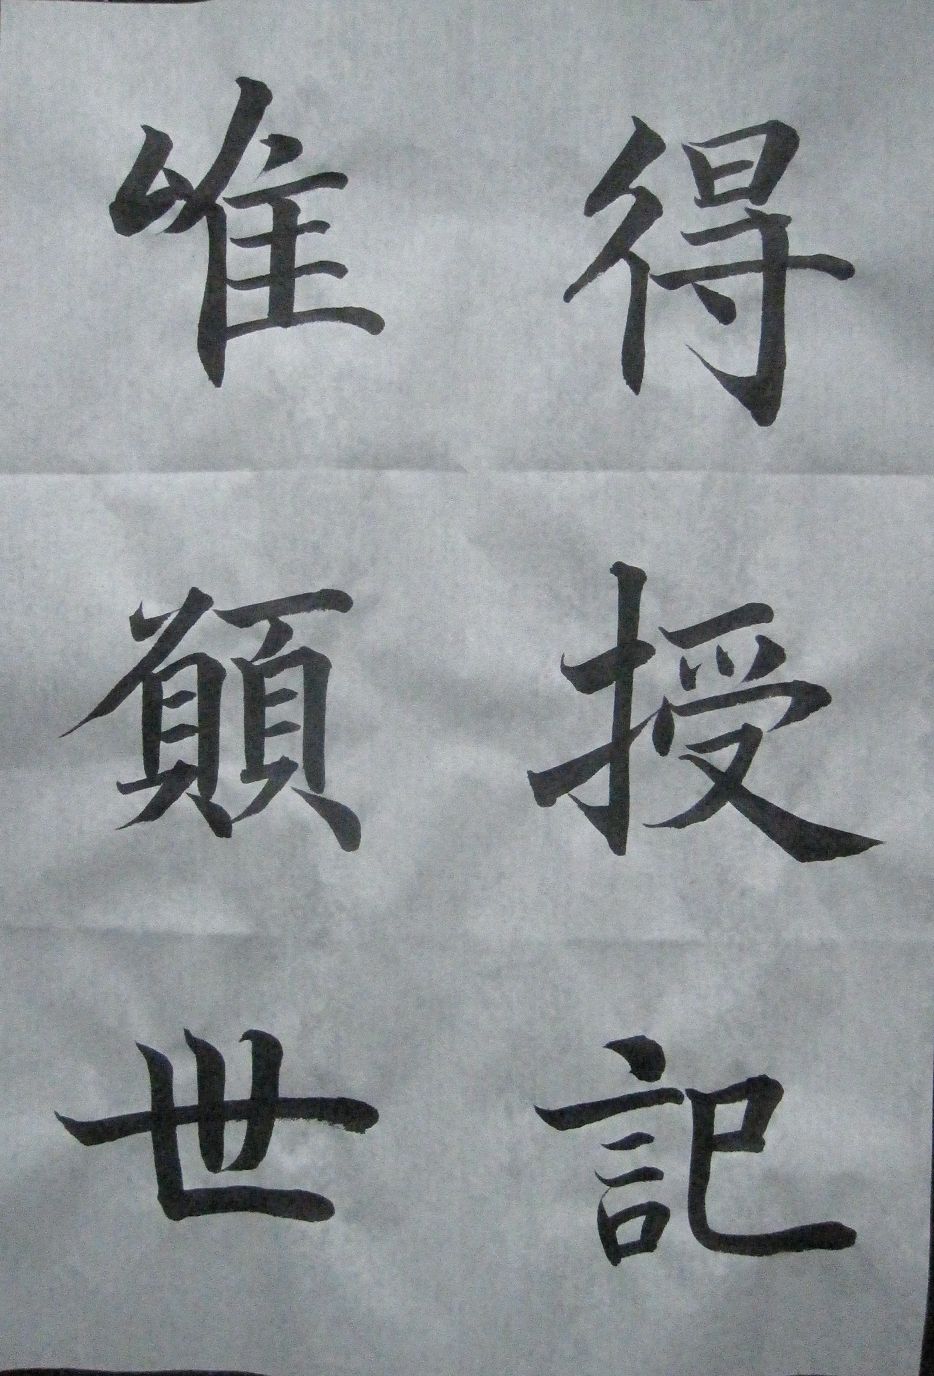 得授記
唯顚世